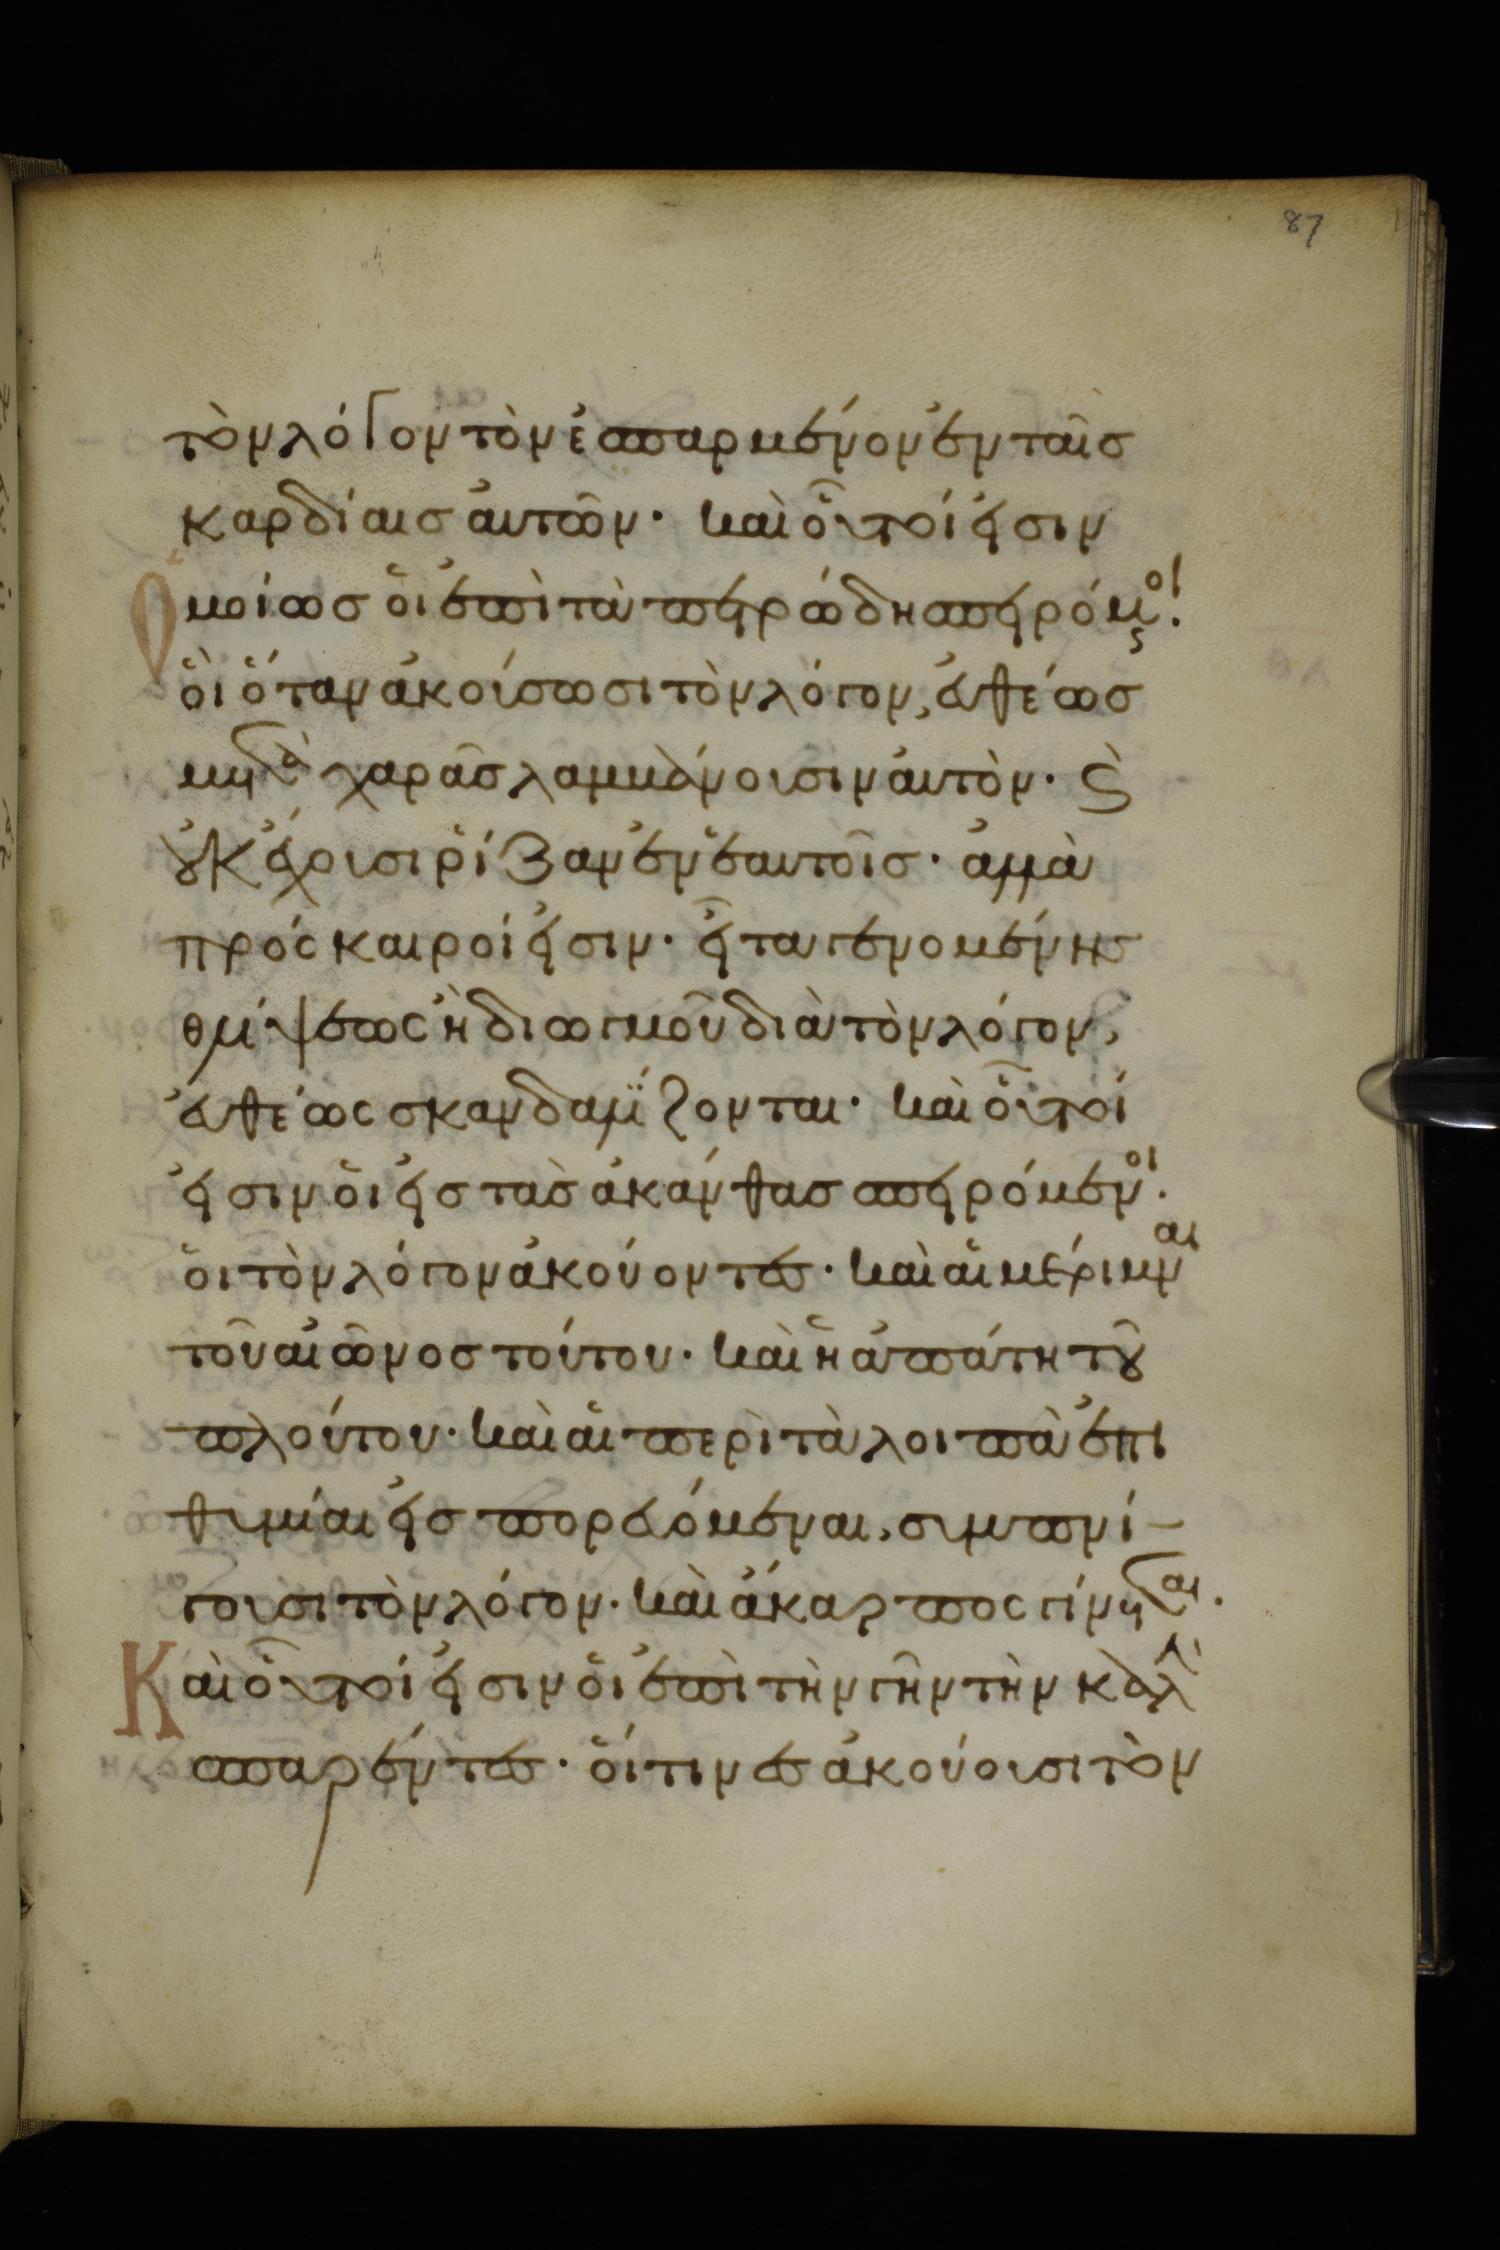 87
τὸν λόγον τὸν ἐσπαρμένον ἐν ταῖς
καρδίαις αὐτῶν· καὶ οὗτοί εἰσιν
Ὁμοίως οἱ ἐπὶ τὰ πετρώδη σπειρόμενοι.
οἳ ὅταν ἀκούσωσι τὸν λόγον, εὐθέως
μετὰ χαρᾶς λαμβάνουσιν αὐτὸν· ϗ
οὐκ ἔχουσι ῥίζαν ἐν ἑαυτοῖς· ἀλλὰ
πρόσκαιροί εἰσιν· εἶτα γενομένης
θλίψεως ἢ διωγμοῦ διὰ τὸν λόγον,
εὐθέως σκανδαλίζονται· καὶ οὗτοί
εἰσιν οἱ εἰς τὰς ἀκάνθας σπειρόμενοι.
οἱ τὸν λόγον ἀκούοντες· καὶ αἱ μέριμναι
τοῦ αἰῶνος τούτου· καὶ ἡ ἀπάτη τοῦ
πλούτου· καὶ αἱ περὶ τὰ λοιπὰ ἐπι
θυμίαι εἰσπορευόμεναι, συμπνί-
γουσι τὸν λόγον· καὶ ἄκαρπος γίνεται.
Καὶ οὗτοί εἰσιν οἱ ἐπὶ τὴν γῆν τὴν καλὴν
σπαρέντες· οἵτινες ἀκούουσι τὸν